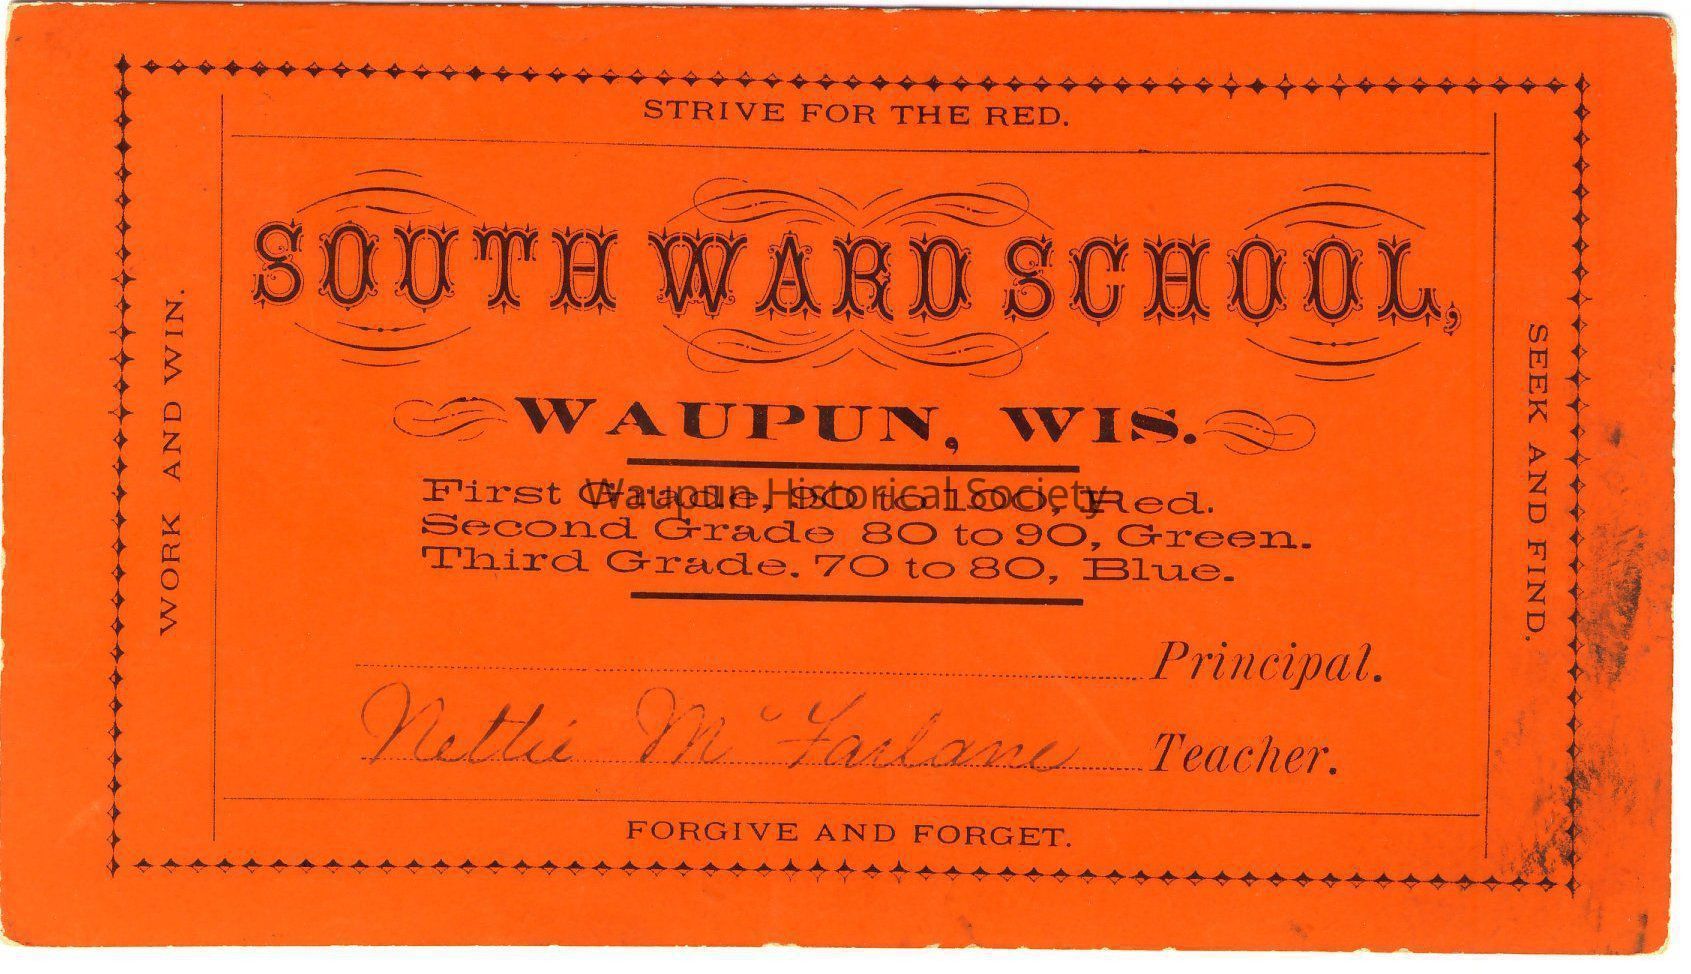 STRIVE FOR THE RED.
SOUTH WARD SCHOOL,
WAUPUN, WIS.
First Grade, 90 to 100, Red.
Second Grade 80 to 90, Green.
Third Grade. 70 to 80, Blue.
Waupun Historical Society
Principal.
Nettie Mc Farlane Teacher.
FORGIVE AND FORGET.
WORK AND WIN.
SEEK AND FIND.